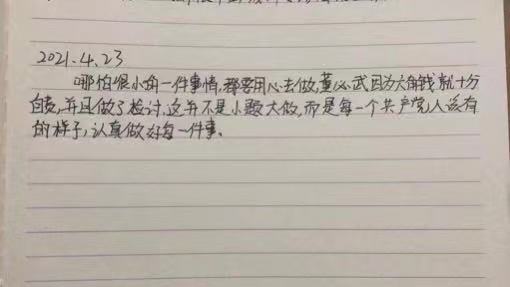 2021.4.23
哪怕很小的一件事情,都要用心去做,董必武因为六角钱就十分
自责,并且做了检讨,这并不是小题大做,而是每一个共产党人该有
的样子,认真做好每一件事。